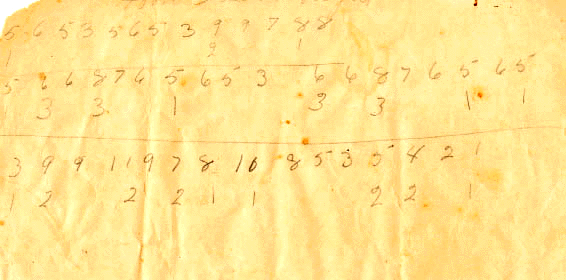 5 6 5 3 5 6 5 3 9 9 7 8 8
1 2 1
5 6 6 8 7 6 5 6 5 3 6 6 8 7 6 5 6 5
3 3 1 3 3 1 1
3 9 9 11 9 7 8 10 8 5 3 5 4 2 1
1 2 2 2 1 1 2 2 1